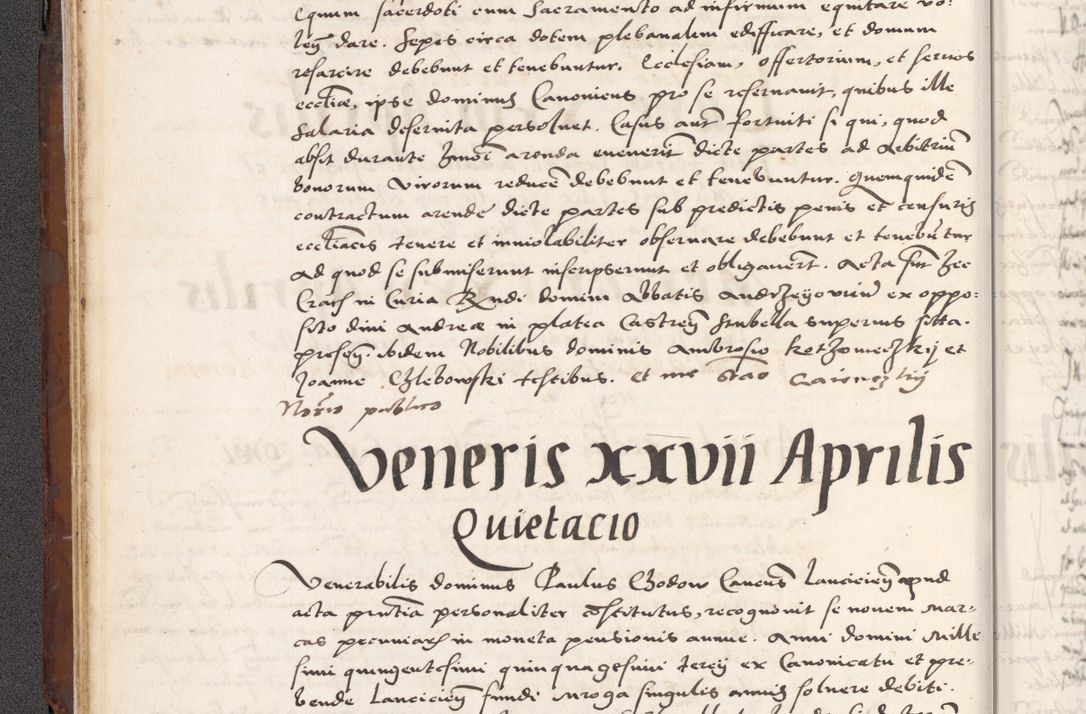 Equum sacerdoti cum Sacramento ad infirmum equitare vo-
len̄ dare. Sepes circa dotem plebanalem edifficare, et domum
resarcire debebunt et tenebuntur. Ecclesiam, offertorium, et servos
eccliæ, ipse dominus Canonicus pro se reservavit, quibus ille
salaria deservita persolvet. Casus aūt fortuiti si qui, quod
absit durante hmōi arenda evenerīt dicte partes ad Arbitriū
bonorum virorum reducē debebunt et tenebuntur. Quemquidē
contractum arende dicte partes sub predictis penis et censuris
eccliācis tenere et inviolabiliter observare debebunt et tenebūtur
ad quod se submiserunt inscripserunt et obligavert̄. Acta sūt hec
Crac̄ in Curia Rn̄di domini Abbatis Andrzeyoviēn̄ ex oppo-
sito divi Andreæ in platea Castren̄ stubella superius sitta.
presen̄. ibidem Nobilibus dominis Ambrosio kotzmieczkij et
Joanne Chlebowski testibus. et me Stāo
Notrio publico
Veneris xxvii Aprilis
Quietacio
Venerabilis dominus Paulus Chodow Canc̄us Lancicien̄ apud
acta pn̄tia personaliter cōstitutus, recognovit se novem mar-
cas pecuniar̄ in moneta pensionis annue. Anni domini Mille
simi quingentesimi quinquagesimi tercij ex Canonicatu et pre-
bende Lancicien̄ fundi Mroga singulis annis solvere debiti.